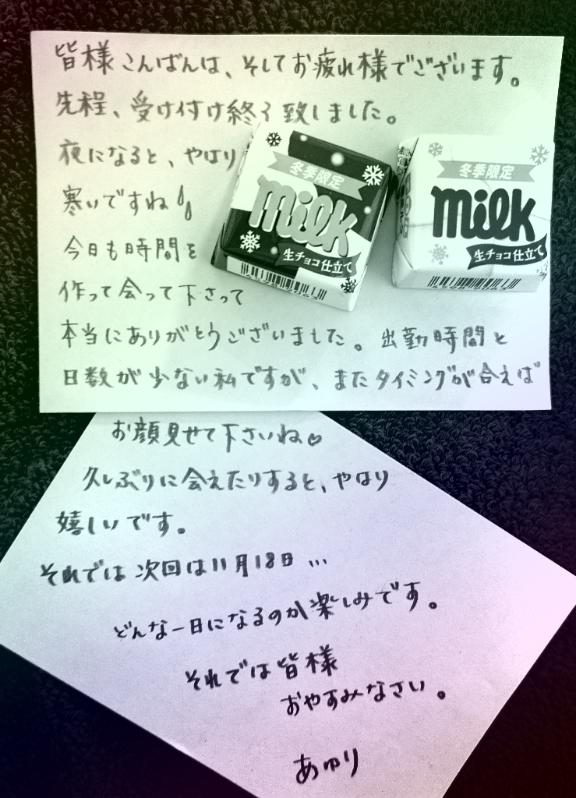 皆様こんばんは、そしてお疲れ様でございます。
先程、受け付け終了致しました。
夜になると、やはり
寒いですね
今日も時間を
作って会って下さって
本当にありがとうございました。出勤時間と
日数が少ない私ですが、またタイミングが合えば
冬季限定
milk
生チョコ仕立て
冬季限定
milk
生チョコ仕立て
お顔見せて下さいね♡
久しぶりに会えたりすると、やはり
嬉しいです。
それでは次回は11月18日…
どんな一日になるのか楽しみです。
それでは皆様
おやすみなさい。
あゆり